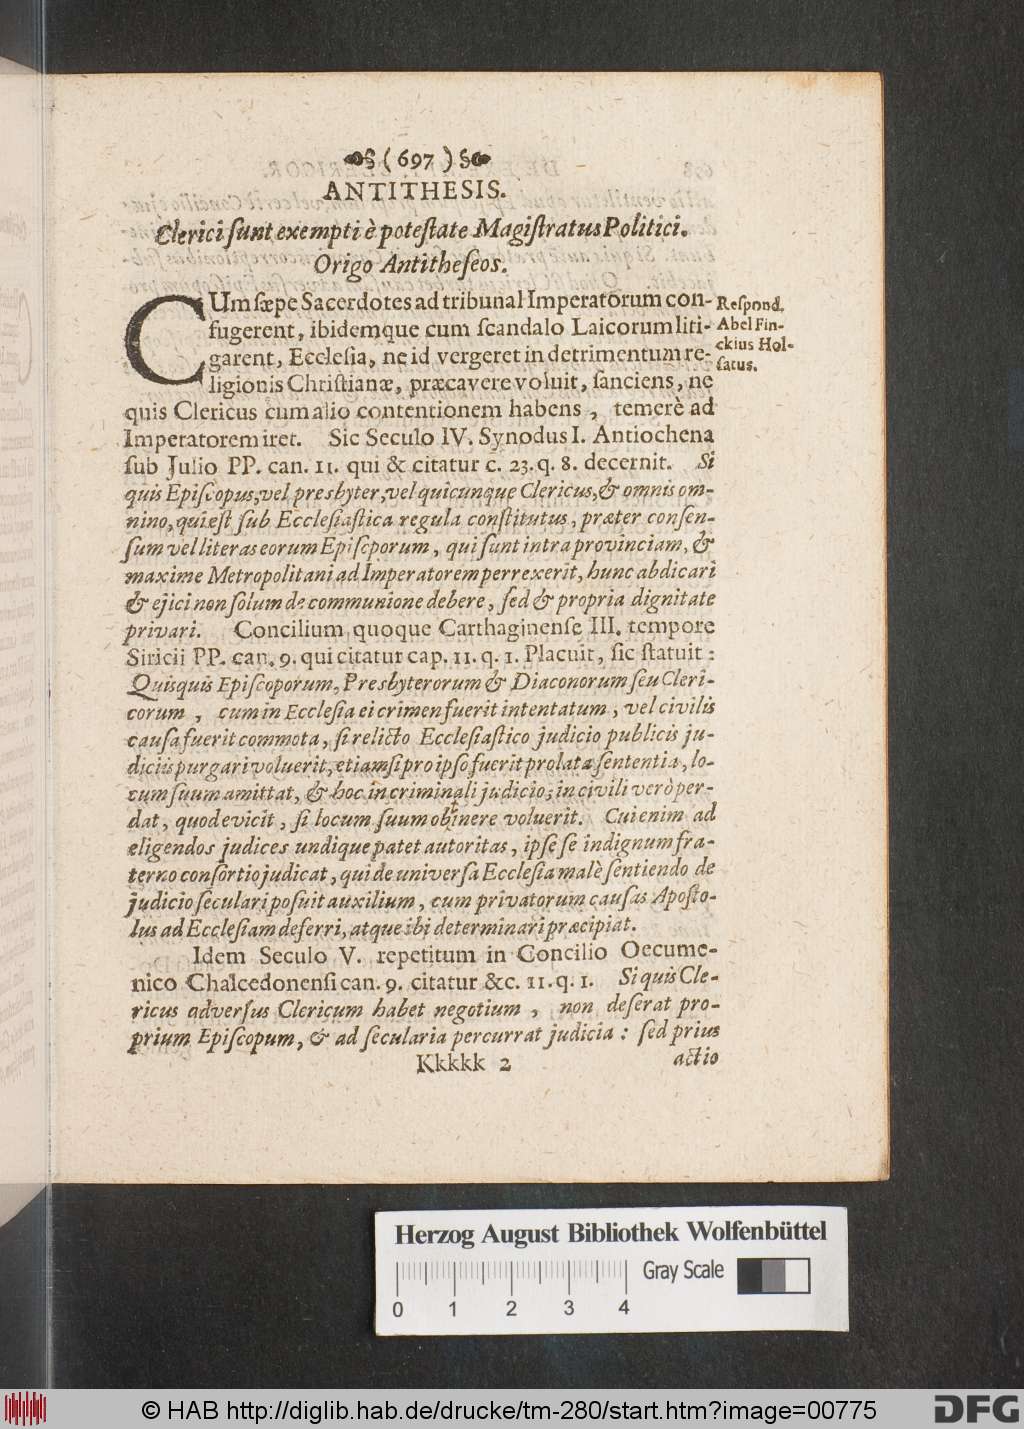 ( 697 )
ANTITHESIS.
Clerici ſunt exempti è poteſtate Magiſtratus Politici.
Origo Antitheſeos.
CUm ſæpe Sacerdotes ad tribunal Imperatorum con-
fugerent, ibidemque cum ſcandalo Laicorum liti-
garent, Eccleſia, ne id vergeret in detrimentum re-
ligionis Chriſtianæ, præcavere voluit, ſanciens, ne
Reſpond.
Abel Fin-
ckius Hol-
ſatus.
quis Clericus cum alio contentionem habens, temerè ad
Imperatorem iret. Sic Seculo IV. Synodus I. Antiochena
ſub Julio PP. can. 11. qui & citatur c. 23. q. 8. decernit. Si
quis Epiſcopus, vel presbyter, vel quicunque Clericus, & omnis om-
nino, qui eſt ſub Eccleſiaſtica regula conſtitutus, præter conſen-
ſum vel literas eorum Epiſcporum, qui ſunt intra provinciam, &
maxime Metropolitani ad Imperatorem perrexerit, hunc abdicari
& ejici non ſolum de communione debere, ſed & propria dignitate
privari. Concilium quoque Carthaginenſe III. tempore
Siricii PP. can. 9. qui citatur cap. 11. q. 1. Placuit, ſic ſtatuit:
Quisquis Epiſcoporum, Presbyterorum & Diaconorum ſeu Cleri-
corum, cum in Eccleſia ei crimen fuerit intentatum, vel civilis
cauſa fuerit commota, ſi relicto Eccleſiaſtico judicio publicis ju-
diciis purgari voluerit, etiamſi pro ipſo fuerit prolata ſententia, lo-
cum ſuum amittat, & hoc in criminali judicio; in civili verò per-
dat, quod evicit, ſi locum ſuum obinere voluerit. Cui enim ad
eligendos judices undique patet autoritas, ipſe ſe indignum fra-
terno conſortio judicat, qui de univerſa Eccleſia malè ſentiendo de
judicio ſeculari poſuit auxilium, cum privatorum cauſas Apoſto-
lus ad Eccleſiam deferri, atque ibi determinari præcipiat.
Idem Seculo V. repetitum in Concilio Oecume-
nico Chalcedonenſi can. 9. citatur &c. 11. q. 1. Si quis Cle-
ricus adverſus Clericum habet negotium, non deſerat pro-
prium Epiſcopum, & ad ſecularia percurrat judicia: ſed prius
Kkkkk 2 actio
Herzog August Bibliothek Wolfenbüttel
Gray Scale
0 1 2 3 4
© HAB http://diglib.hab.de/drucke/tm-280/start.htm?image=00775
DFG